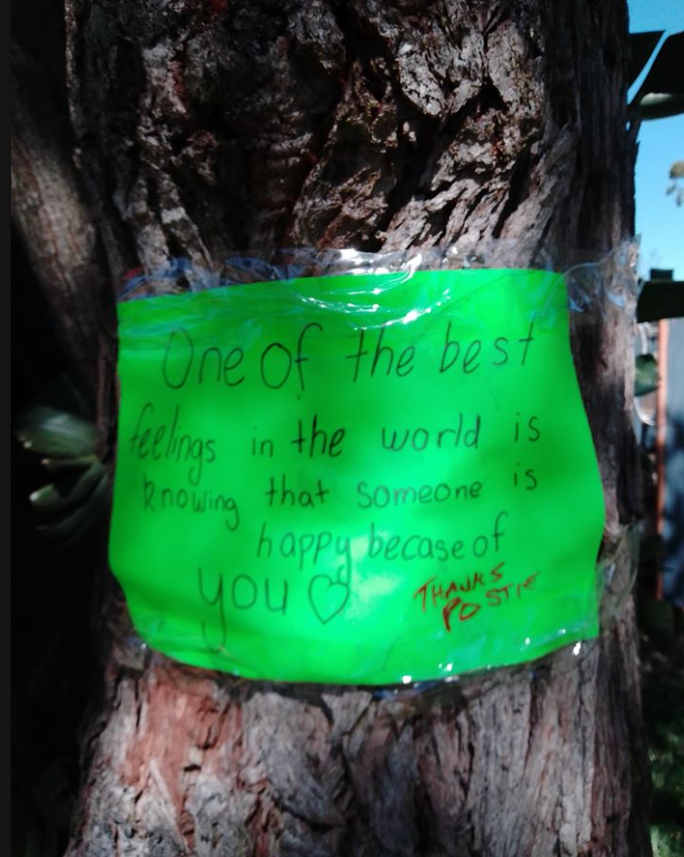 One of the best
feelings in the world is
knowing that someone is
happy becase of
you ♡
THANKS
POSTIE